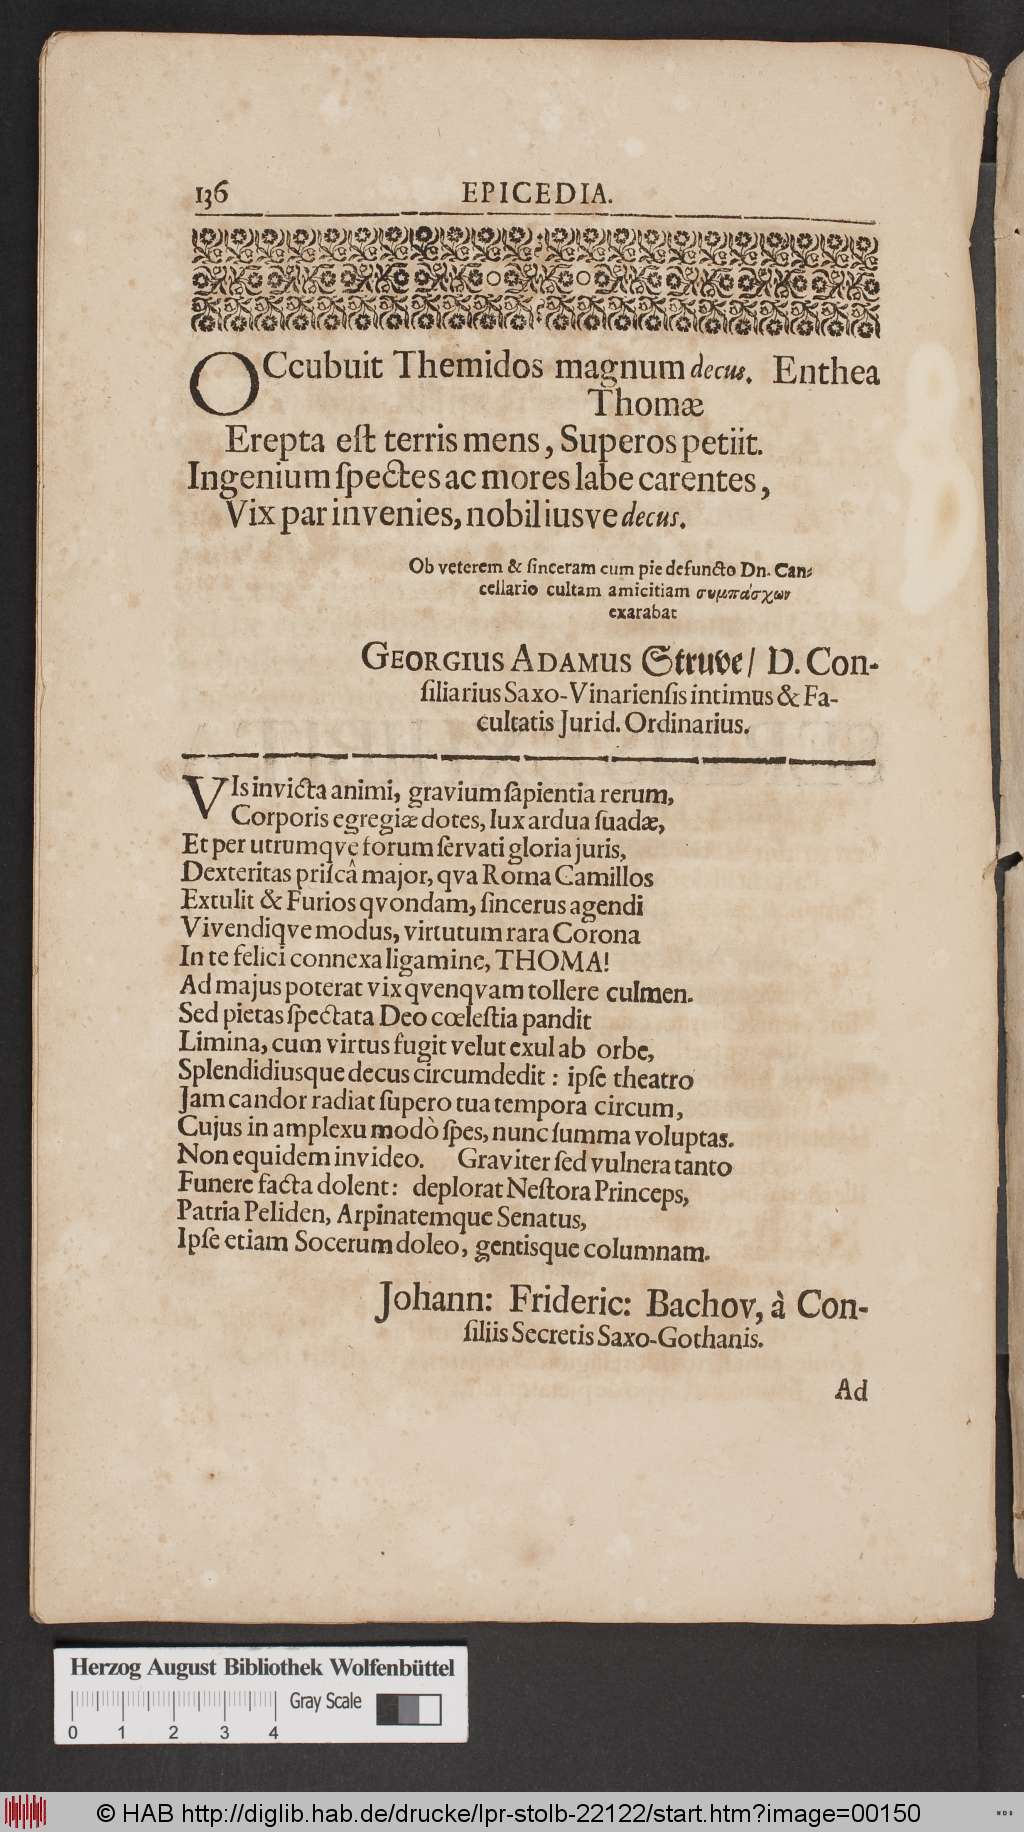 136 EPICEDIA.
OCcubuit Themidos magnum decus. Enthea
Thomæ
Erepta eſt terris mens, Superos petiit.
Ingenium ſpectes ac mores labe carentes,
Vix par invenies, nobiliusve decus.
Ob veterem & ſinceram cum pie defuncto Dn. Can-
cellario cultam amicitiam συμπάσχων
exarabat
GEORGIUS ADAMUS Struve/ D. Con-
ſiliarius Saxo-Vinarienſis intimus & Fa-
cultatis Jurid. Ordinarius.
VIs invicta animi, gravium ſapientia rerum,
Corporis egregiæ dotes, lux ardua ſuadæ,
Et per utrumqve forum ſervati gloria juris,
Dexteritas priſcâ major, qva Roma Camillos
Extulit & Furios qvondam, ſincerus agendi
Vivendiqve modus, virtutum rara Corona
In te felici connexa ligamine, THOMA!
Ad majus poterat vix qvenqvam tollere culmen.
Sed pietas ſpectata Deo cœleſtia pandit
Limina, cum virtus fugit velut exul ab orbe,
Splendidiusque decus circumdedit : ipſe theatro
Jam candor radiat ſupero tua tempora circum,
Cujus in amplexu modò ſpes, nunc ſumma voluptas.
Non equidem invideo. Graviter ſed vulnera tanto
Funere facta dolent: deplorat Neſtora Princeps,
Patria Peliden, Arpinatemque Senatus,
Ipſe etiam Socerum doleo, gentisque columnam.
Johann: Frideric: Bachov, à Con-
ſiliis Secretis Saxo-Gothanis.
Ad
Herzog August Bibliothek Wolfenbüttel
Gray Scale
0 1 2 3 4
© HAB http://diglib.hab.de/drucke/lpr-stolb-22122/start.htm?image=00150
WDB